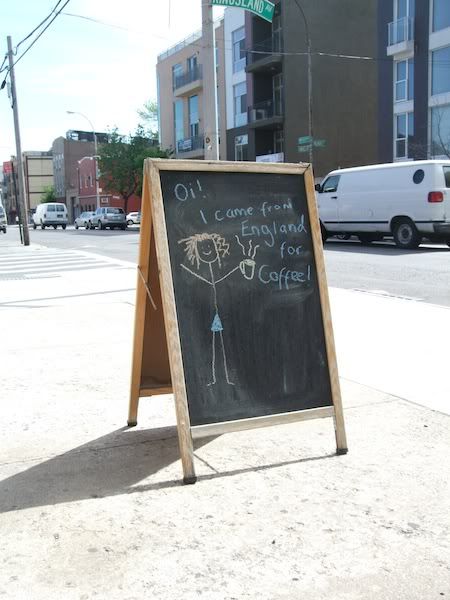 KINGSLAND AV
Oi!
I came from
England
for
Coffee!